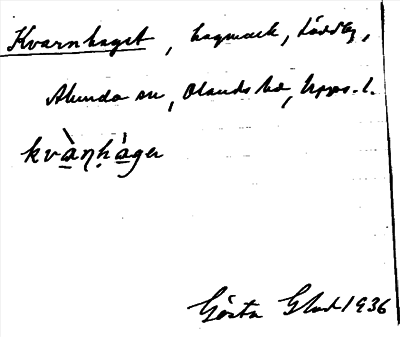 Kvarnhaget, hagmark, Löddby,
Alunda sn, Olands hd, Upps. l.
kvàṇḥàger
Gösta Glad 1936